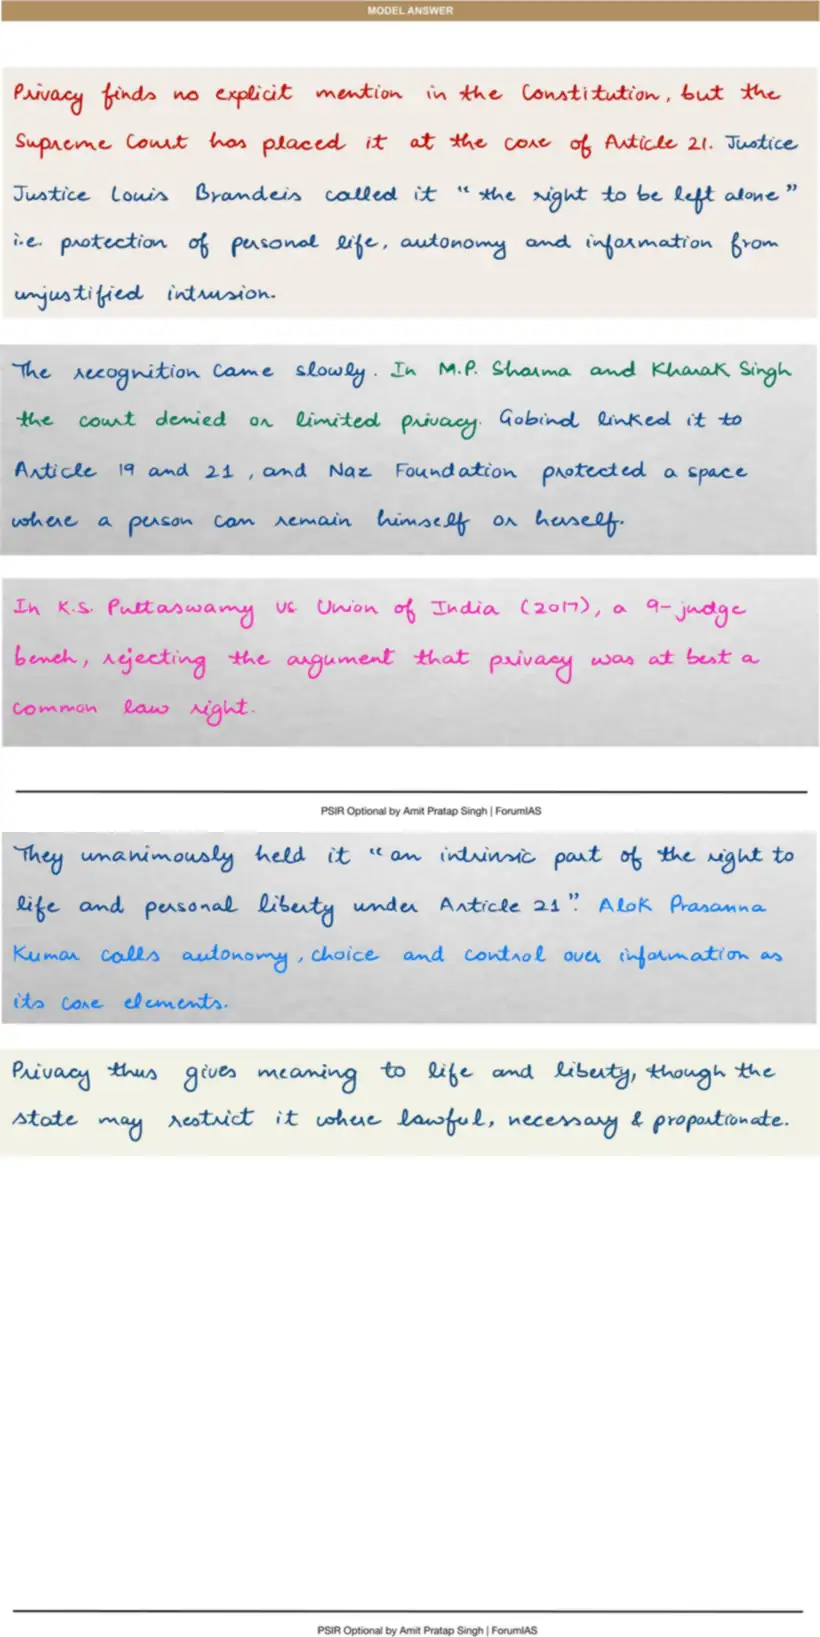 MODEL ANSWER
Privacy finds no explicit mention in the Constitution, but the
Supreme Court has placed it at the core of Article 21. Justice
Justice Louis Brandeis called it "the right to be left alone"
i.e. protection of personal life, autonomy and information from
unjustified intrusion.
The recognition came slowly. In M.P. Sharma and Kharak Singh
the court denied or limited privacy. Gobind linked it to
Article 19 and 21, and Naz Foundation protected a space
where a person can remain himself or herself.
In K.S. Puttaswamy vs Union of India (2017), a 9-judge
bench, rejecting the argument that privacy was at best a
common law right.
PSIR Optional by Amit Pratap Singh | ForumIAS
They unanimously held it "an intrinsic part of the right to
life and personal liberty under Article 21". Alok Prasanna
Kumar calls autonomy, choice and control over information as
its core elements.
Privacy thus gives meaning to life and liberty, though the
state may restrict it where lawful, necessary & proportionate.
PSIR Optional by Amit Pratap Singh | ForumIAS